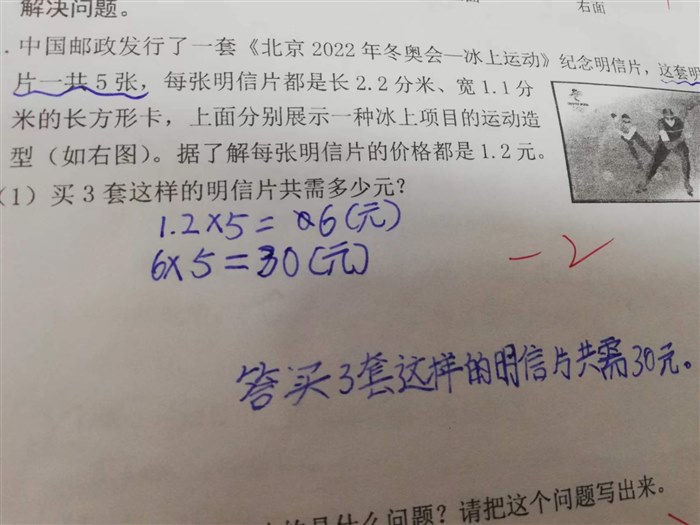 解决问题。
右面
. 中国邮政发行了一套《北京 2022 年冬奥会—冰上运动》纪念明信片，这套明
片一共 5 张，每张明信片都是长 2.2 分米、宽 1.1 分
米的长方形卡，上面分别展示一种冰上项目的运动造
型（如右图）。据了解每张明信片的价格都是 1.2 元。
(1) 买 3 套这样的明信片共需多少元？
1.2×5=6(元)
6×5=30(元)
-2
答买3套这样的明信片共需30元。
是什么问题？请把这个问题写出来。